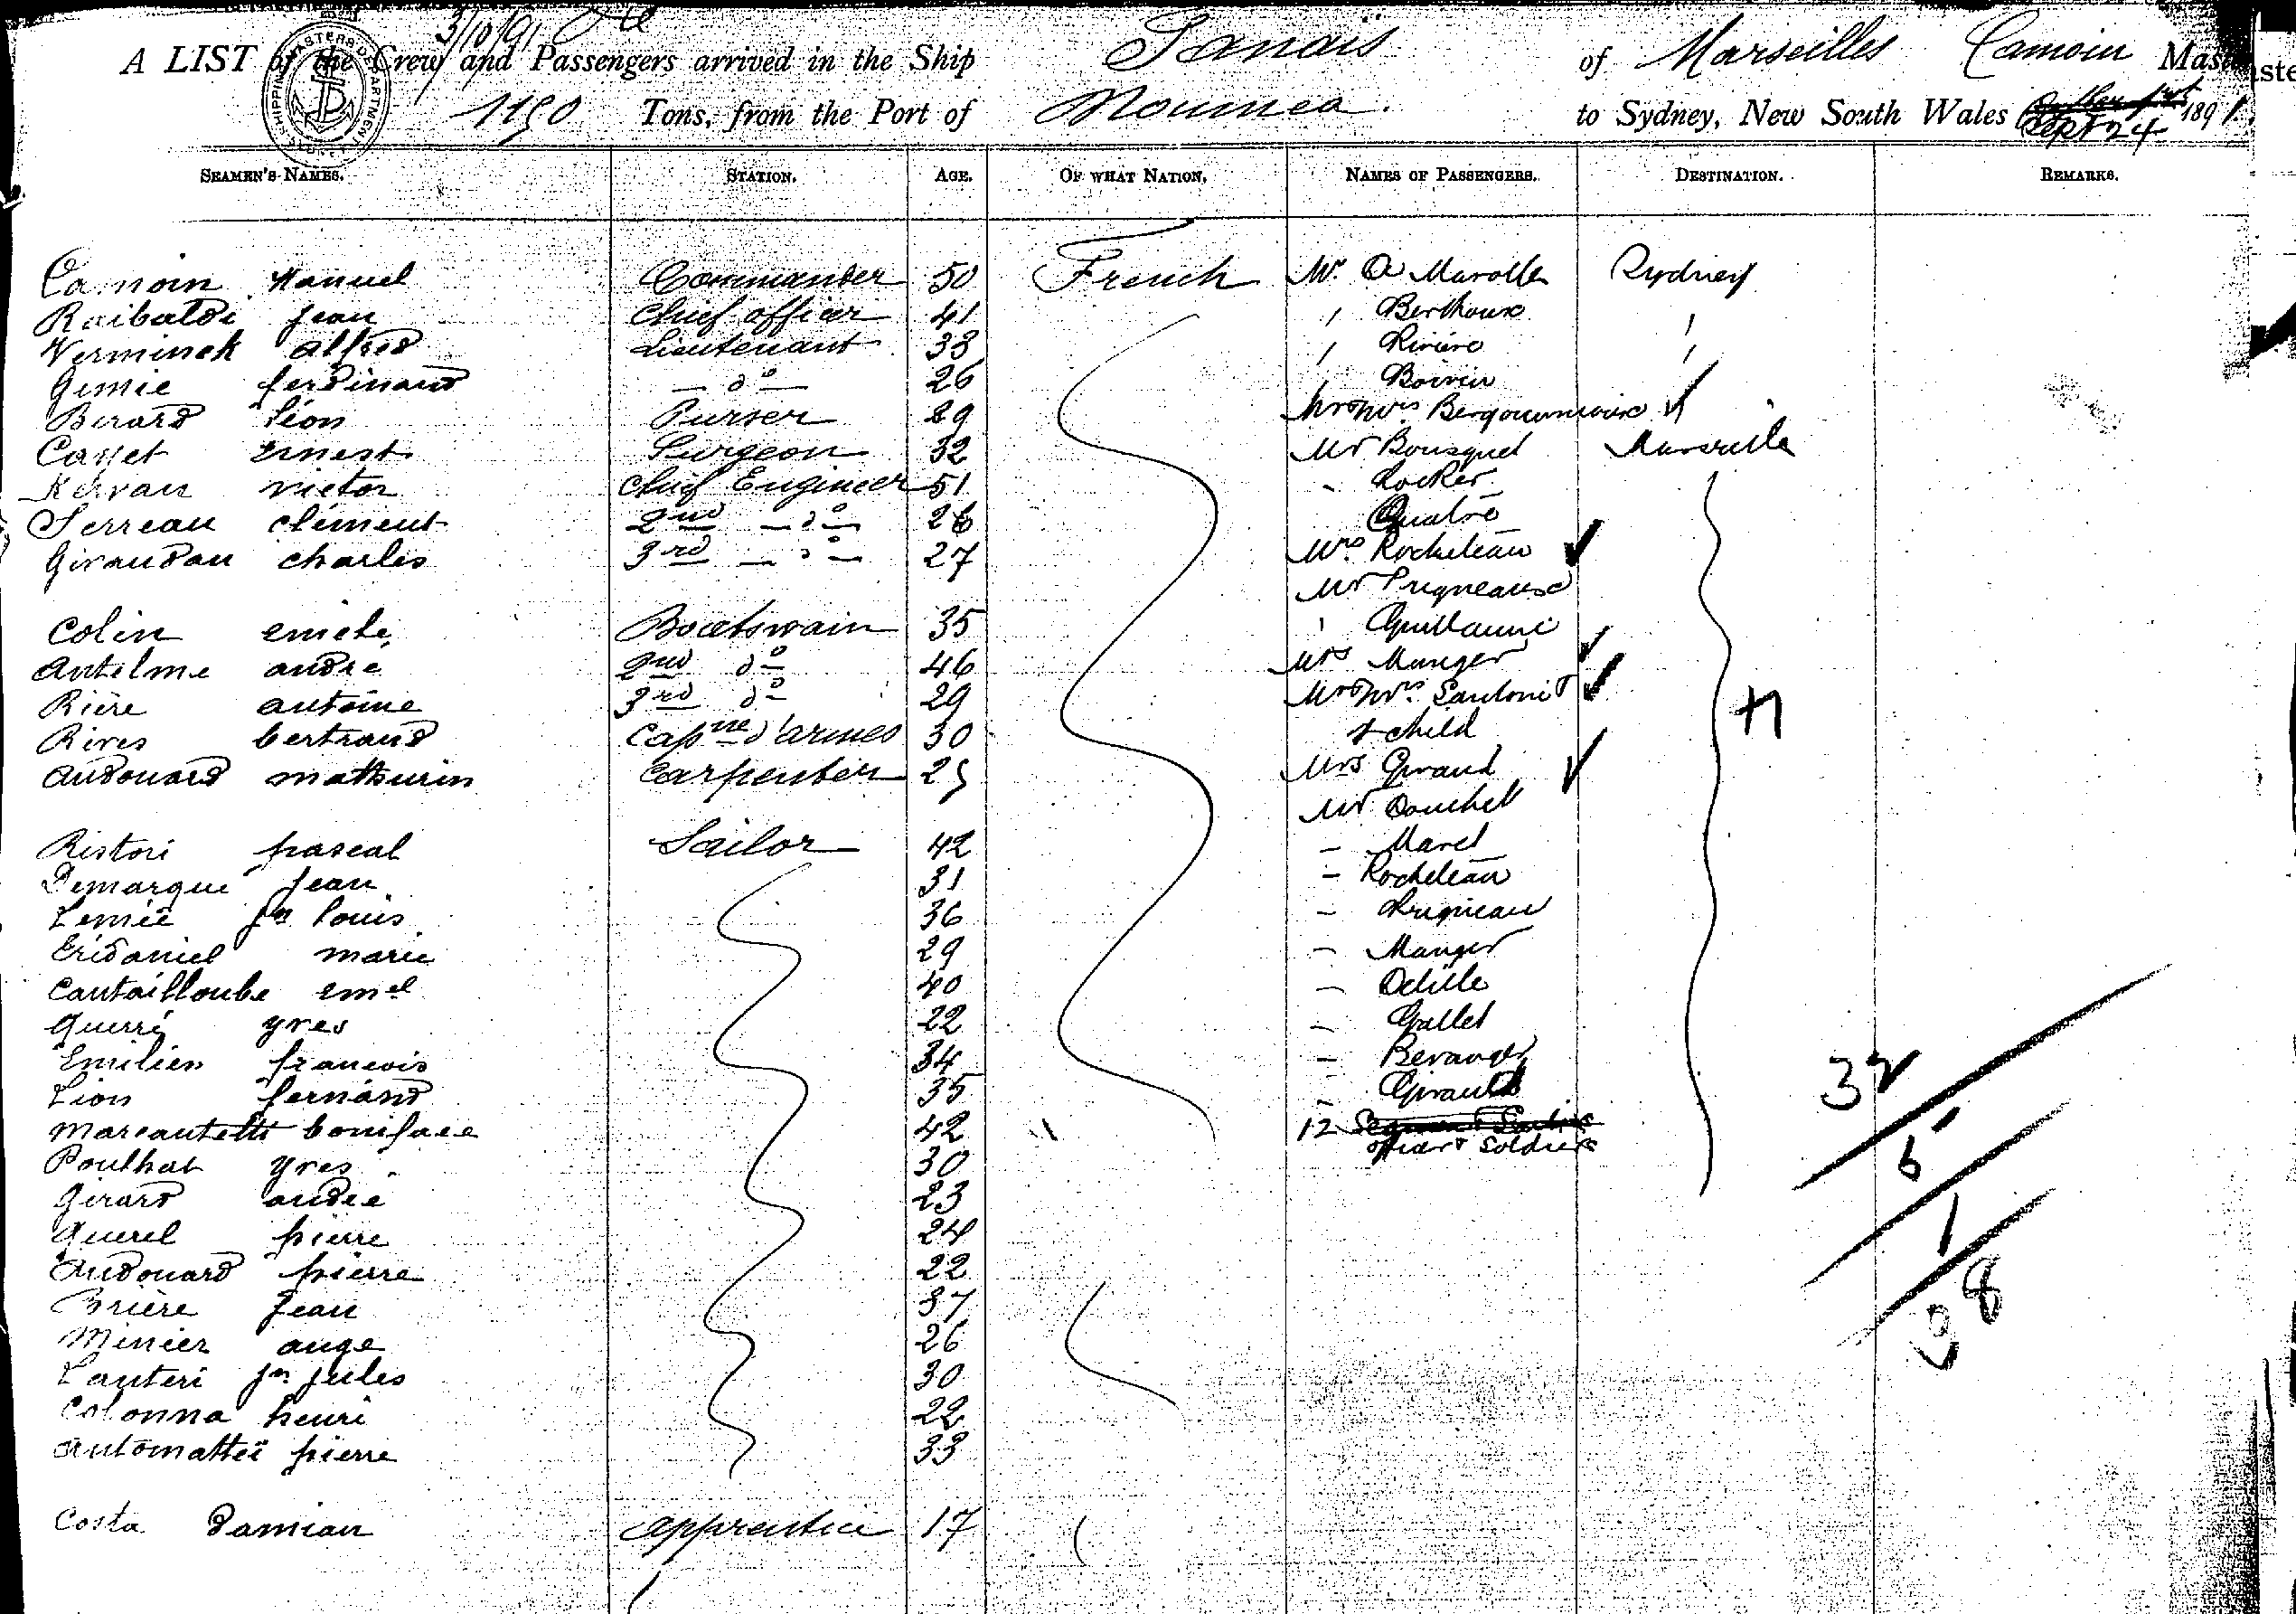 3/10/91
A LIST of the Crew and Passengers arrived in the Ship Tanais of Marseilles Camoin Master
1190 Tons, from the Port of Noumea. to Sydney, New South Wales Sept 24 1891.
SHIPPING MASTERS DEPARTMENT
SEAMEN'S NAMES. STATION. AGE. OF WHAT NATION. NAMES OF PASSENGERS. DESTINATION. REMARKS.
Camoin Manuel Commander 50 French Mr Marolle Sydney
Raibaldi jean chief officer 41 , Berthoux ,
Verminck alfred Lieutenant 33 , Rivière ,
Gimie ferdinand — do — 26 , Boivin
Berard léon Purser 29 Mr & Mrs
Cayet ernest Surgeon 32 Mr Bousquet Marseille
Kervan victor chief Engineer 51 - Locker
Serreau clément 2nd — do — 26 Quatre
Giraudau charles 3rd — do — 27 Mrs Rocheteau
Mr Prigneaux
Colin emile Boatswain 35 , Guillaume
antelme andré 2nd do 46 Mrs Manger
Rière antoine 3rd do 29 Mr & Mrs Santoni
Rives bertrand Capne d'armes 30 & child
audouard mathurin Carpenter 25 Mrs Giraud
Mr Douchet
Ristori pascal Sailor 42 - Maret
Demarque jean 31 - Rocheteau
Lemée jn louis 36 - Prigneau
Eridaniel marie 29 - Manger
Cantailloube emel 40 - Delille
Querré yves 22 - Gallet
Emilien francois 34 - Beranger
Lion fernand 35 - Girault
marcantetti boniface 42 12
officer & Soldiers
Poulhat yves 30
Girard andré 23
Querel pierre 24
audouard pierre 22
Brière Jean 37
Minier ange 26
Lanteri jn jules 30
Colonna henri 22
antomattéi pierre 33
Costa Damian apprentice 17
32
5
1
38